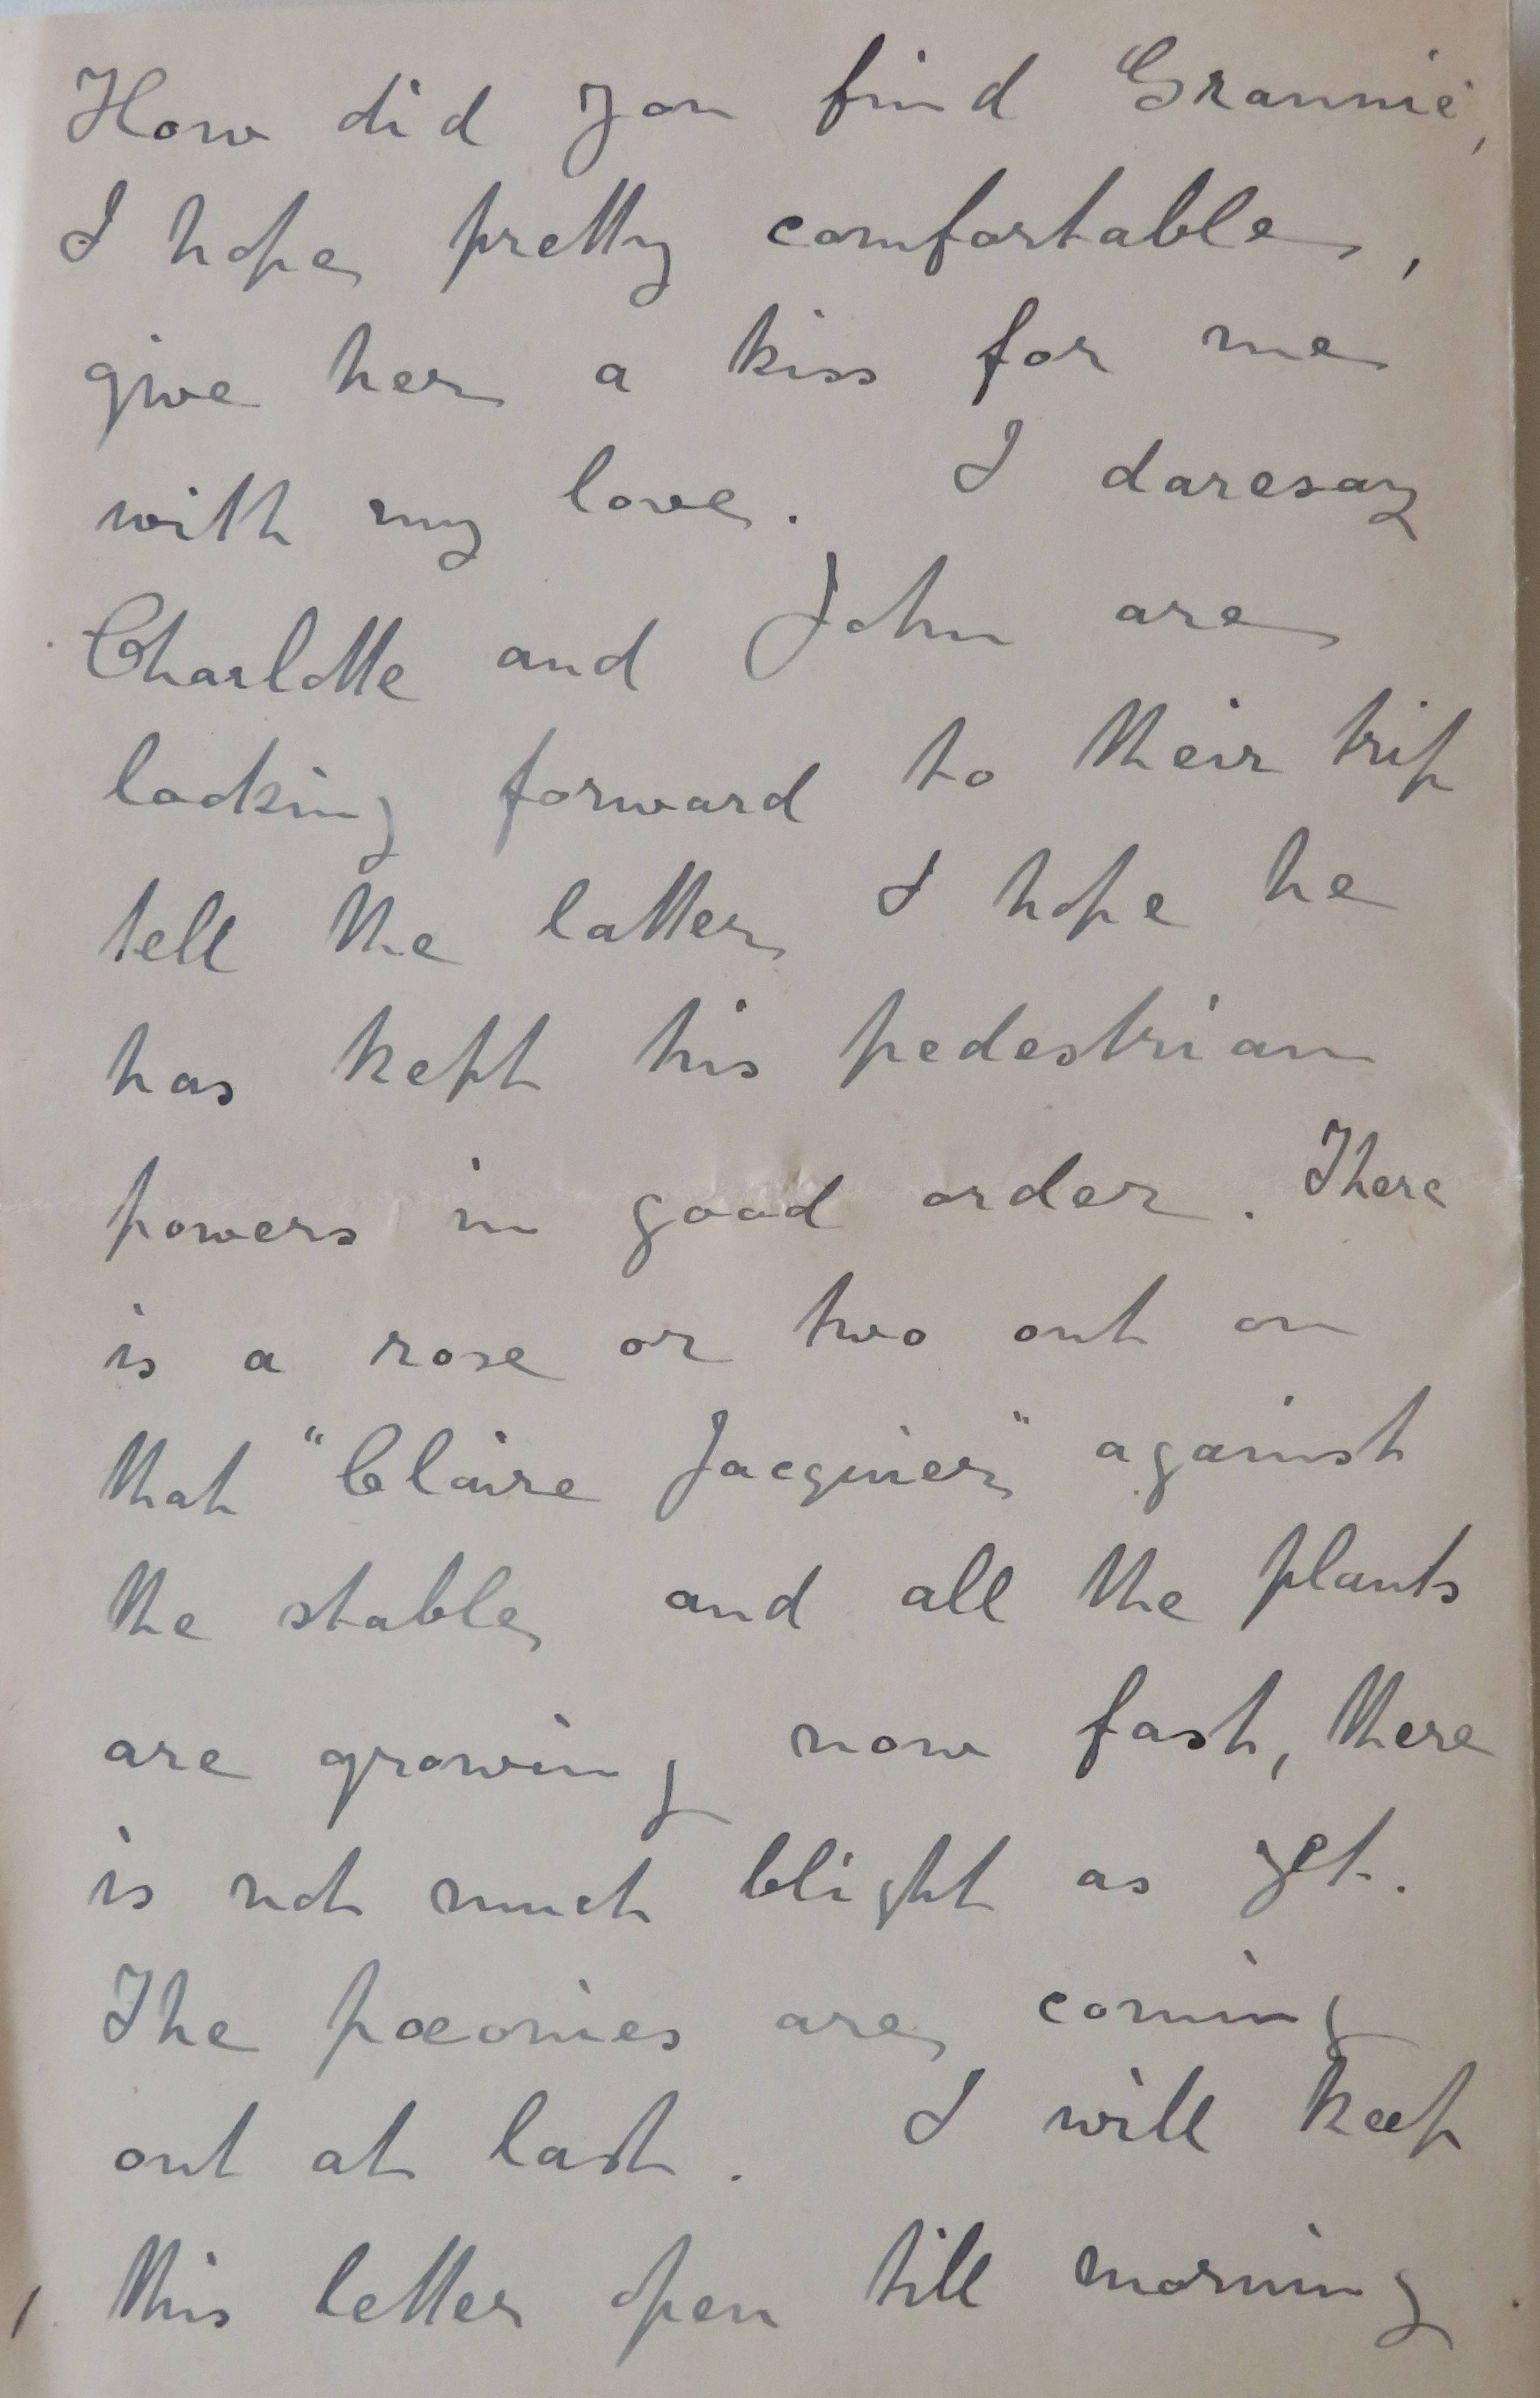 How did you find Grannie,
I hope pretty comfortable,
give her a kiss for me
with my love. I daresay
Charlotte and John are
looking forward to their trip
tell the latter I hope he
has kept his pedestrian
powers in good order. There
is a rose or two out on
that "Claire Jacquier" against
the stable and all the plants
are growing now fast, there
is not much blight as yet.
The pœonies are coming
out at last. I will keep
this letter open till morning